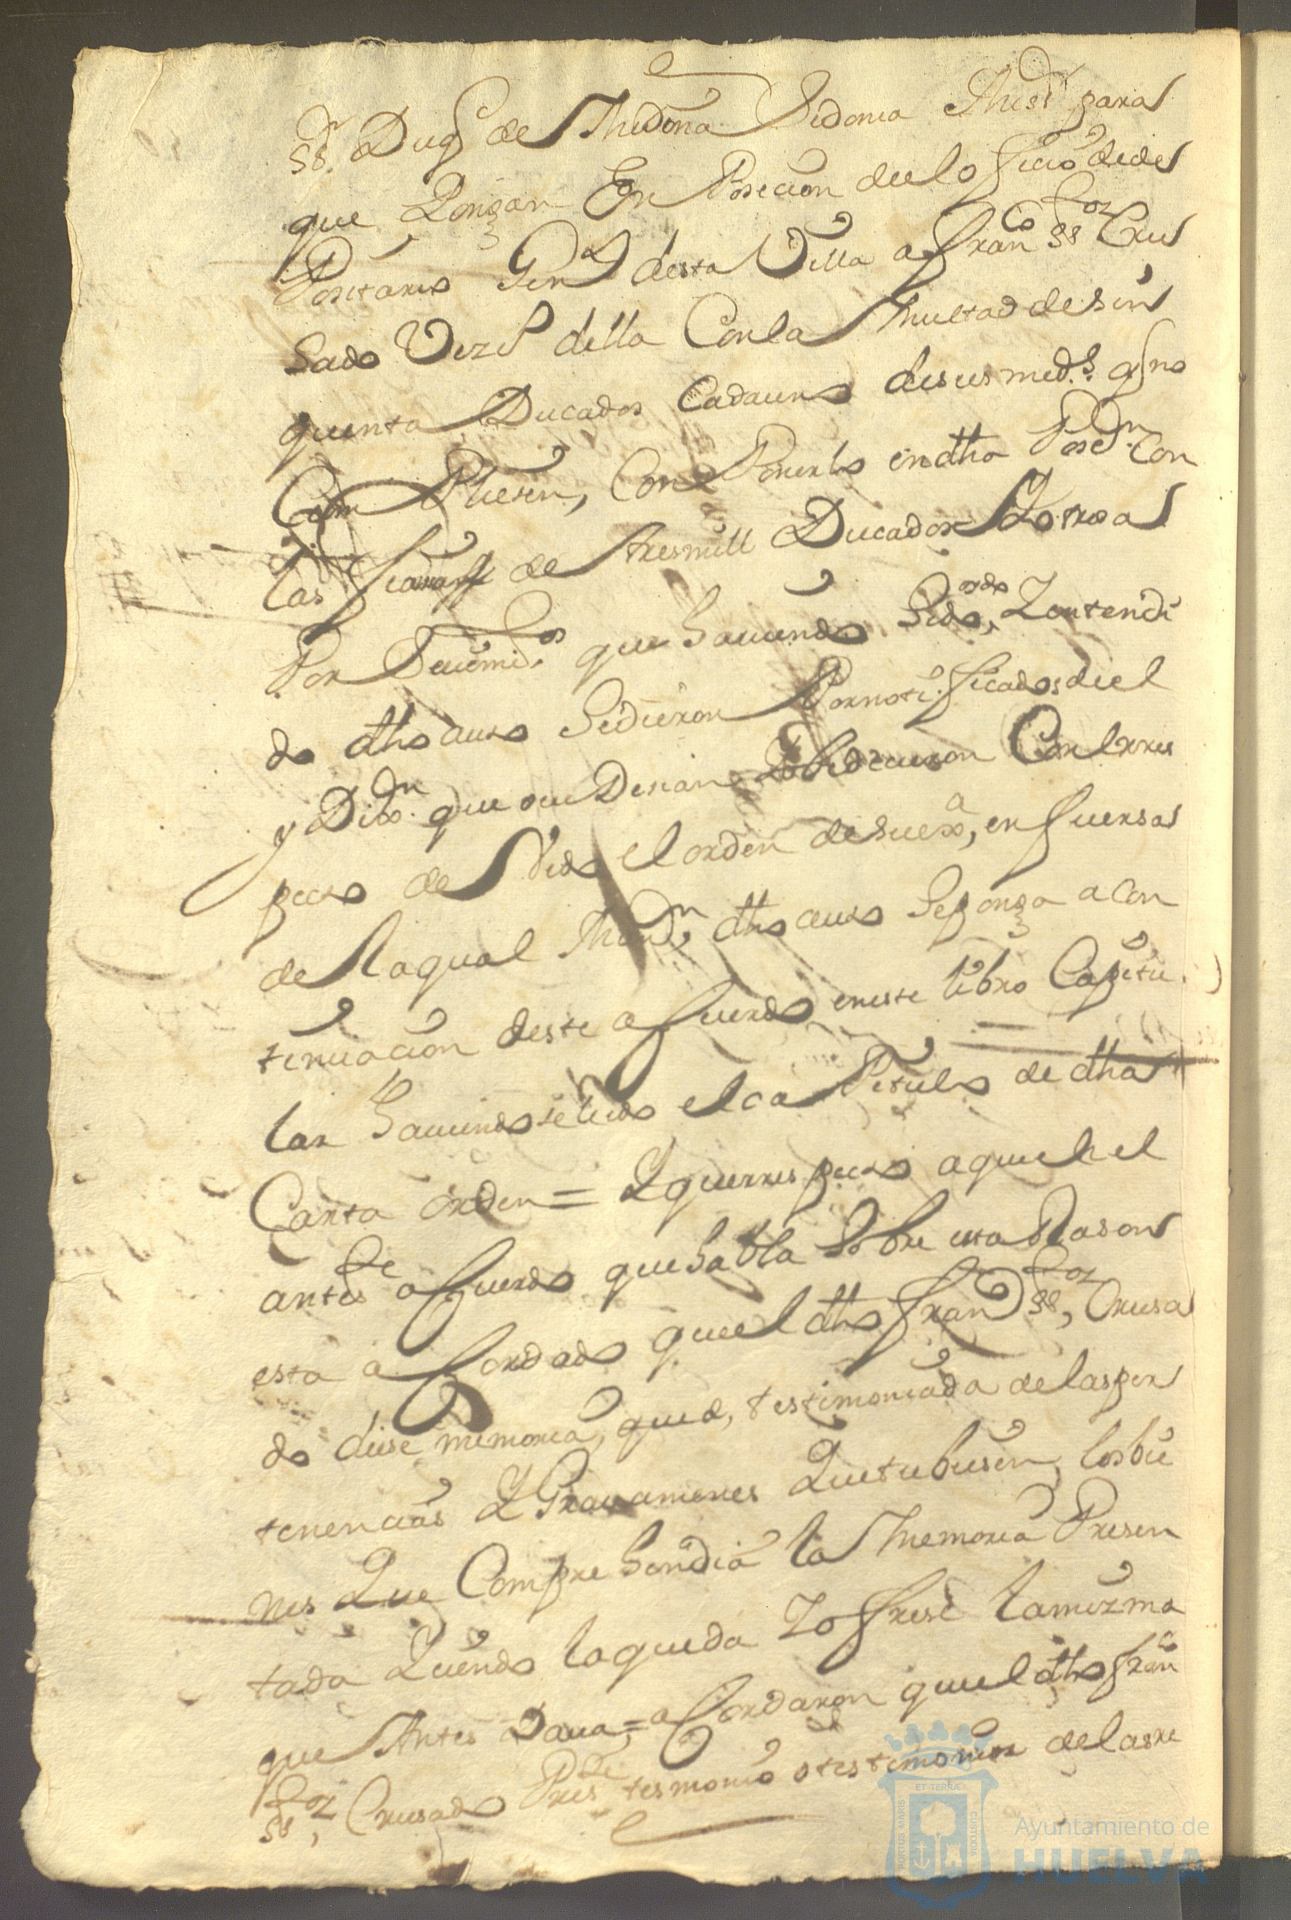 Sr. Duq de Medina Sidonia mi Sr para
que Pongan En Posecion del oficio de de
Positario Genl desta Villa a Fran co Cru
sado Vezo della Con la Multa de sin
quenta Ducados cada uno de sus meds. q no
Cumpliesen, Con Ponerlo en dha Posen. Con
las fianzas de tres mill Ducados
Por que hauiendo Oydo, Y entendi
do dho auto se dieron Por notificados del
y Dixn. que ovedesian obedecieron Con el rres
pecto devido el orden de su exa, en fuersa
de la qual Mandn dho auto se ponga a con
tinuacion deste acuerdo en este libro Capitu
lar hauiendose leido el capitulo de dha
Carta orden = Y que rrespecto a que en el
antese acuerdo que habla Sobre esta Rason
esta acordado que el dho Fran co Crusa
do diese memoria, que, testimoniada de las per
tenencias Y Gravamenes Que tubiesen, los bie
nes Que Comprehendia la Memoria Presen
tada Quendo la queda Y ofrese la mizma
que Antes Daua = acordaron que el dho Fran co
Crusado Prese tesmonio o testimonios de las re
Ayuntamiento de
HUELVA